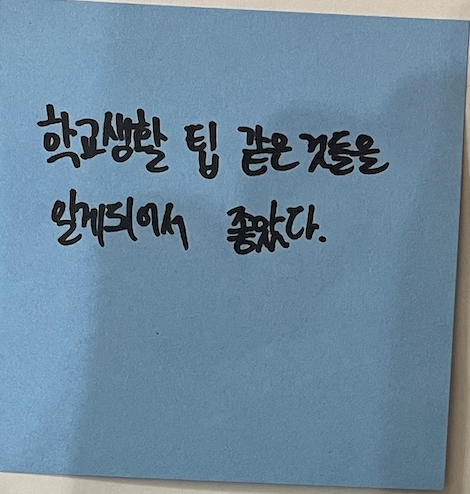 학교생활 팁 같은 것들을
알게되어서 좋았다.